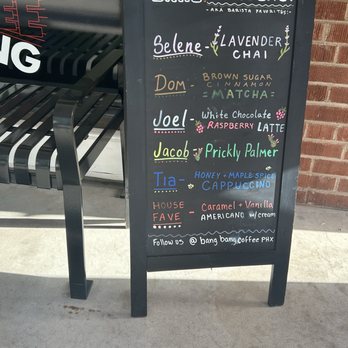 NG
-AKA BARISTA FAVORITES-
Selene - LAVENDER
CHAI
Dom - BROWN SUGAR
CINNAMON
=MATCHA=
Joel - White Chocolate
RASPBERRY LATTE
Jacob - Prickly Palmer
Tia - HONEY + MAPLE SPICE
CAPPUCCINO
HOUSE - Caramel + Vanilla
FAVE AMERICANO w/cream
Follow us @bangbangcoffee PHX